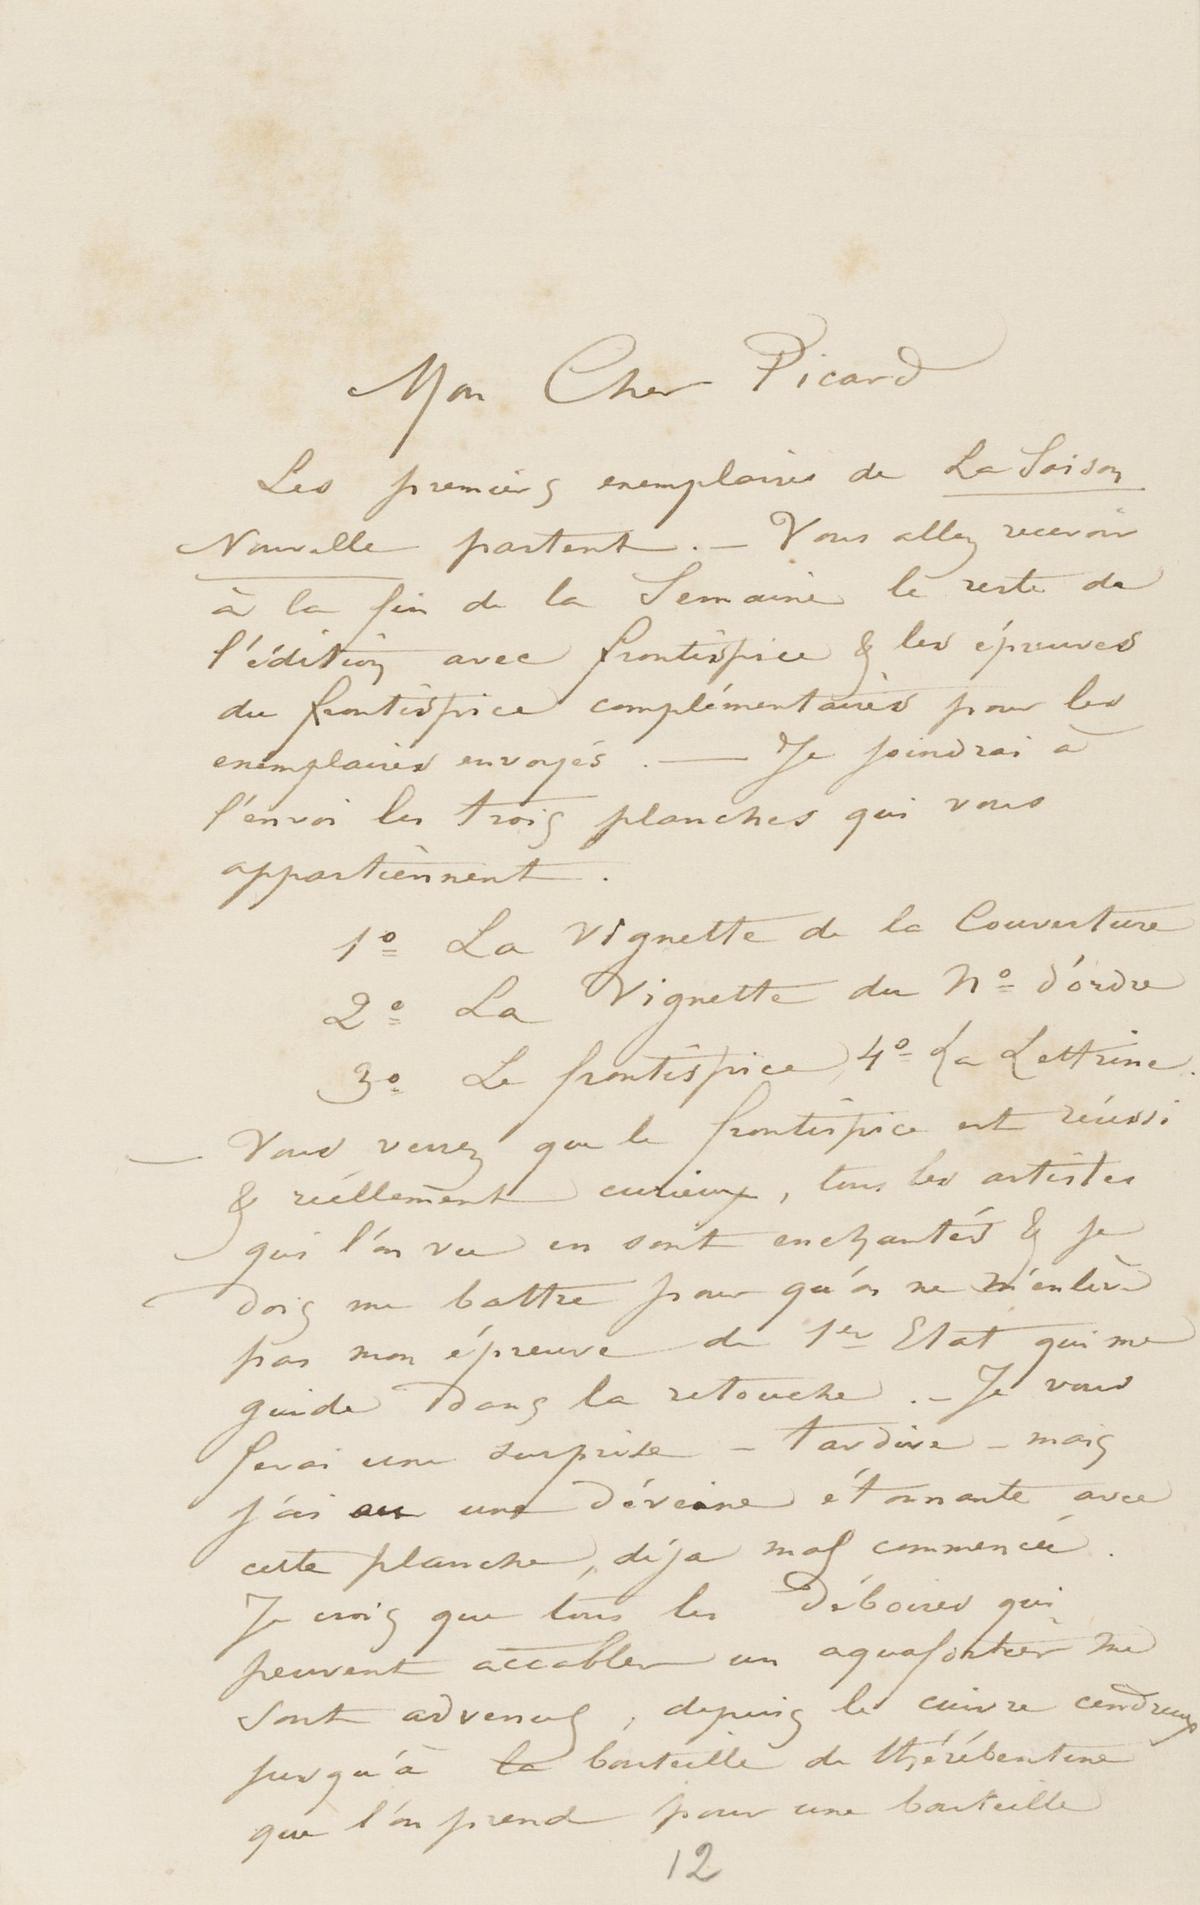 Mon Cher Picard
Les premiers exemplaires de La Saison
Nouvelle partent. — Vous allez recevoir
à la fin de la Semaine le reste de
l'édition avec frontispice & les épreuves
du frontispice complémentaires pour les
exemplaires envoyés. — Je joindrai à
l'envoi les trois planches qui vous
appartiennent.
1º La Vignette de la Couverture
2º La Vignette du Nº d'ordre
3º Le frontispice, 4º La Lettrine.
— Vous verrez que le frontispice est réussi
& réellement curieux, tous les artistes
qui l'on vu en sont enchantés & je
dois me battre pour qu'on ne m'enlève
pas mon épreuve de 1er Etat qui me
guide dans la retouche. — Je vous
ferai une surprise — tardive — mais
j'ai eu une déveine étonnante avec
cette planche, déja mal commencée.
Je crois que tous les déboires qui
peuvent accabler un aquafortier me
sont advenus, depuis le cuivre cendreux
jusqu'à la bouteille de thérébentine
que l'on prend pour une bouteille
12